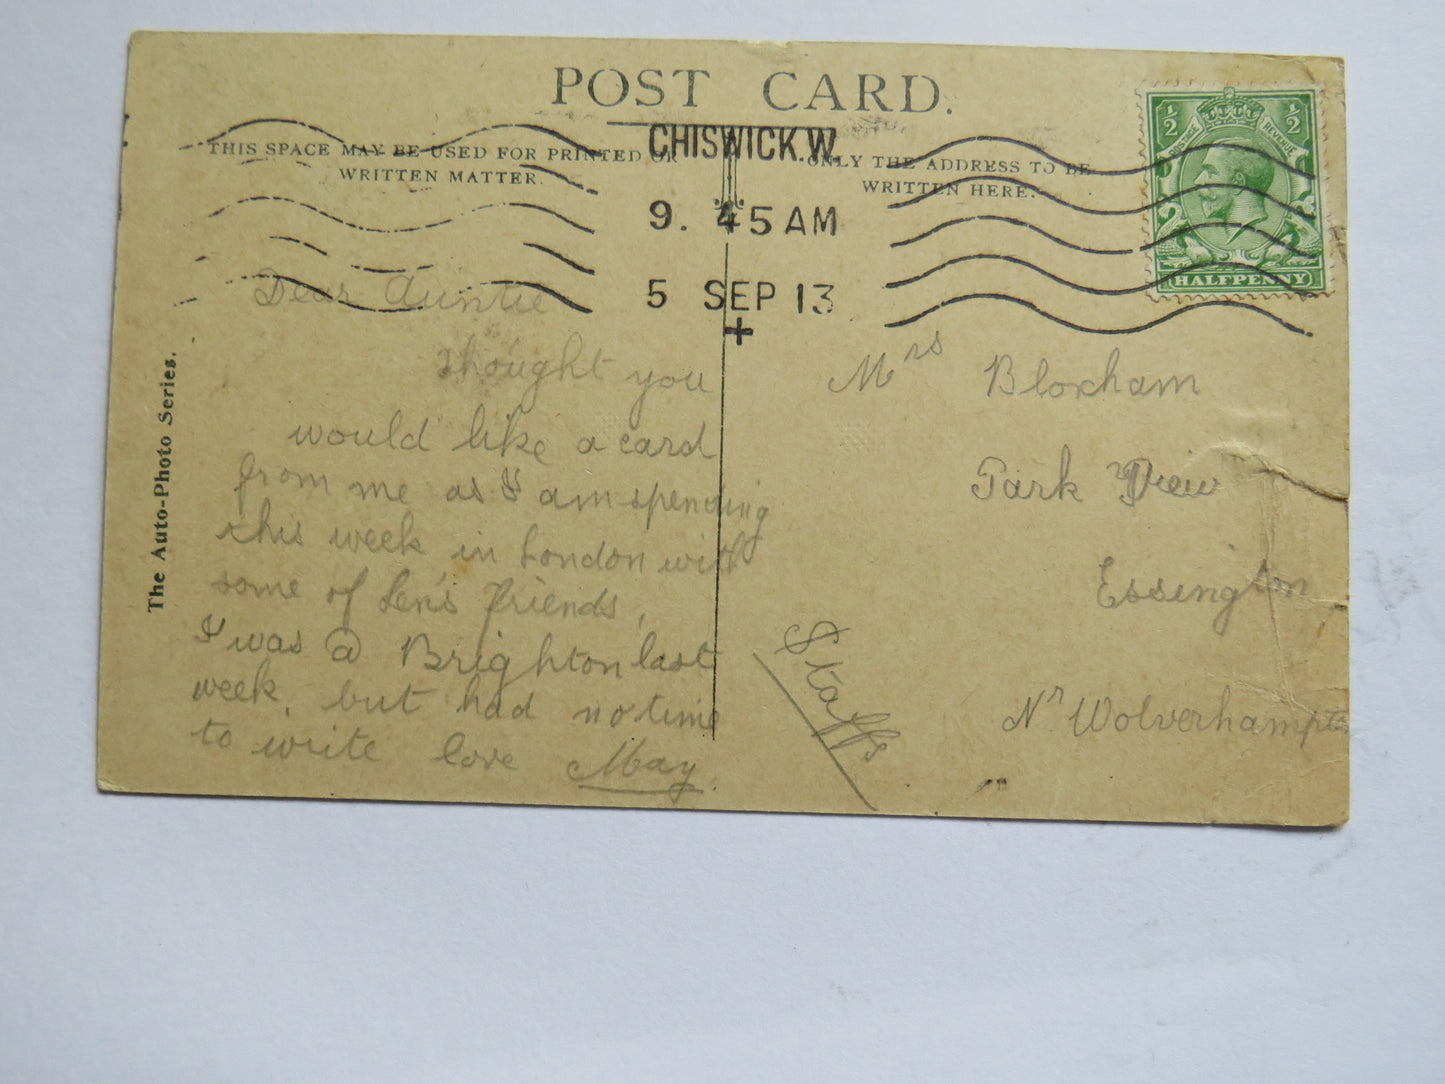 POST CARD.
THIS SPACE MAY BE USED FOR PRINTED OR
WRITTEN MATTER.
ONLY THE ADDRESS TO BE
WRITTEN HERE.
CHISWICK.W.
9. 45 AM
5 SEP 13
½ ½
POSTAGE REVENUE
HALFPENNY
The Auto-Photo Series.
Dear Auntie
Thought you
would like a card
from me as I am spending
this week in London with
some of Len's Friends,
I was @ Brighton last
week, but had no time
to write love May.
Mrs Bloxham
Park View
Essington
Nr Wolverhampton
Staffs